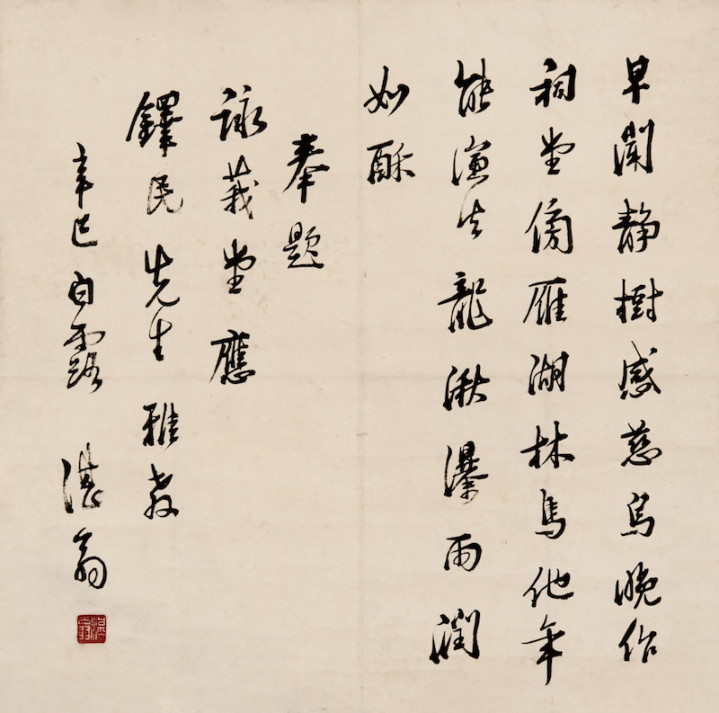 早聞靜樹感慈烏晚作
祠堂傍雁湖林他年
能演龍湫瀑雨潤
如酥
奉題
詠莪堂應
鐸民先生雅教
辛巳白露 湛翁